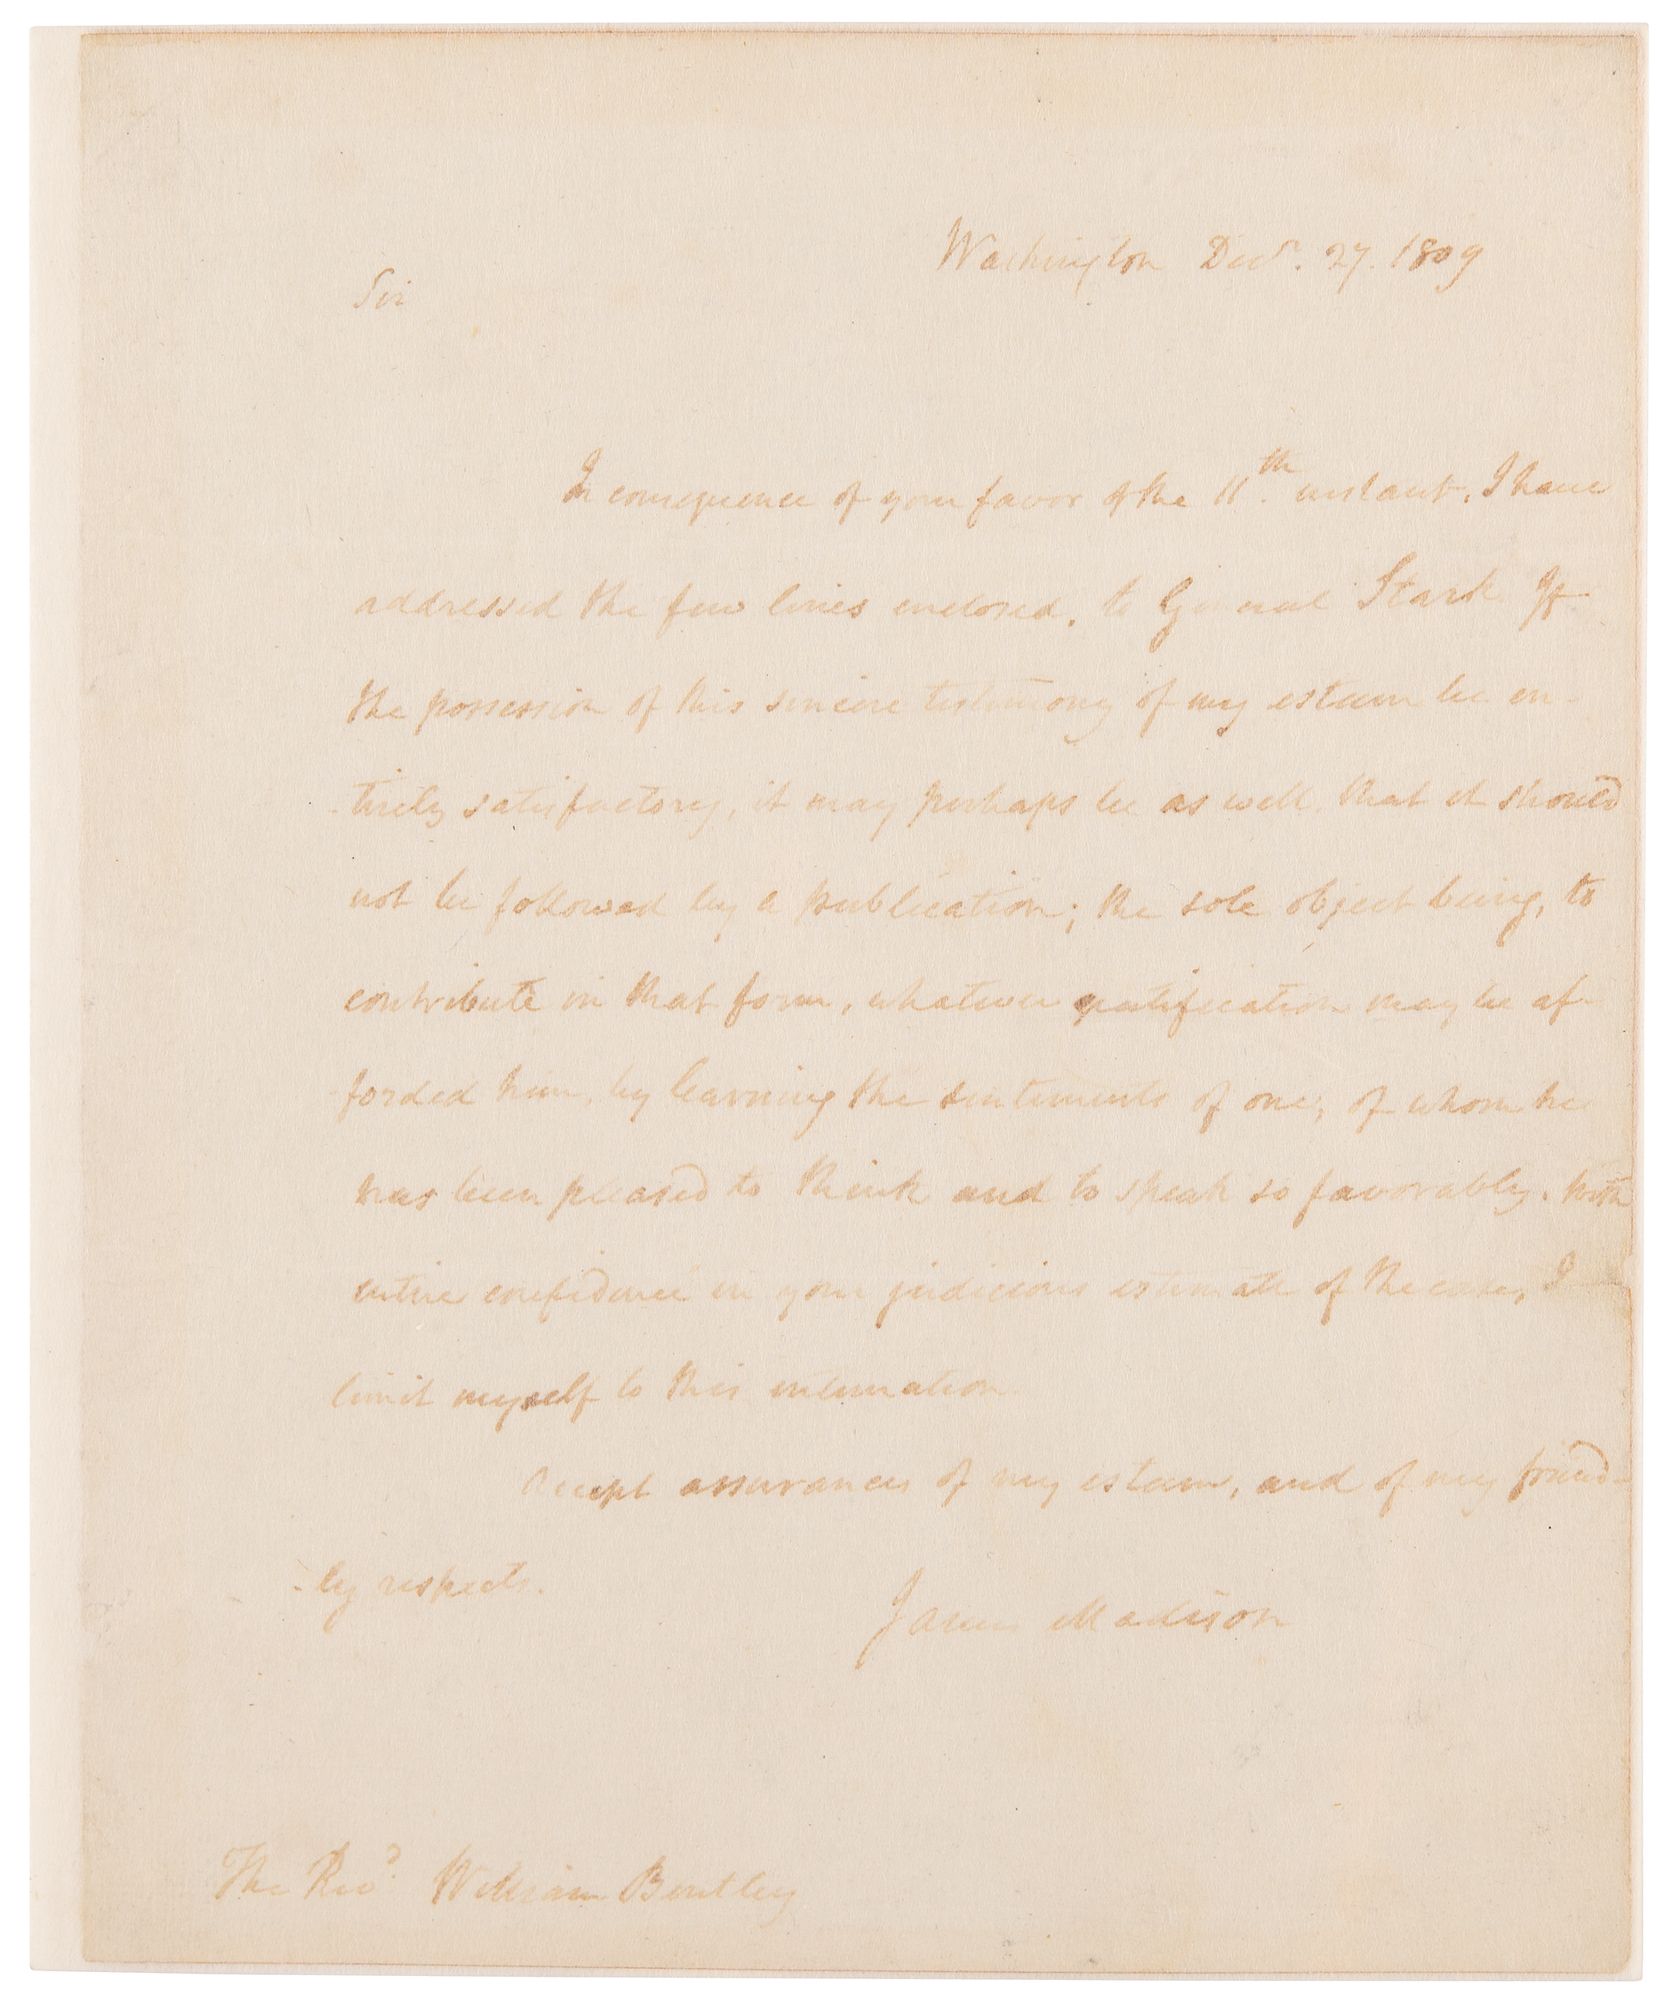 Washington Decr. 27. 1809
Sir
In consequence of your favor of the 11th. instant, I have
addressed the few lines enclosed, to General Stark If
the possession of this sincere testimony of my esteem be en-
-tirely satisfactory, it may perhaps be as well, that it should
not be followed by a publication; the sole object being, to
contribute in that form, whatever gratification may be af-
-forded him, by learning the sentiments of one, of whom he
has been pleased to think and to speak so favorably. With
entire confidence in your judicious estimate of the case, I
limit myself to this intimation.
Accept assurances of my esteem, and of my friend-
-ly respects.
James Madison
The Revd. William Bentley